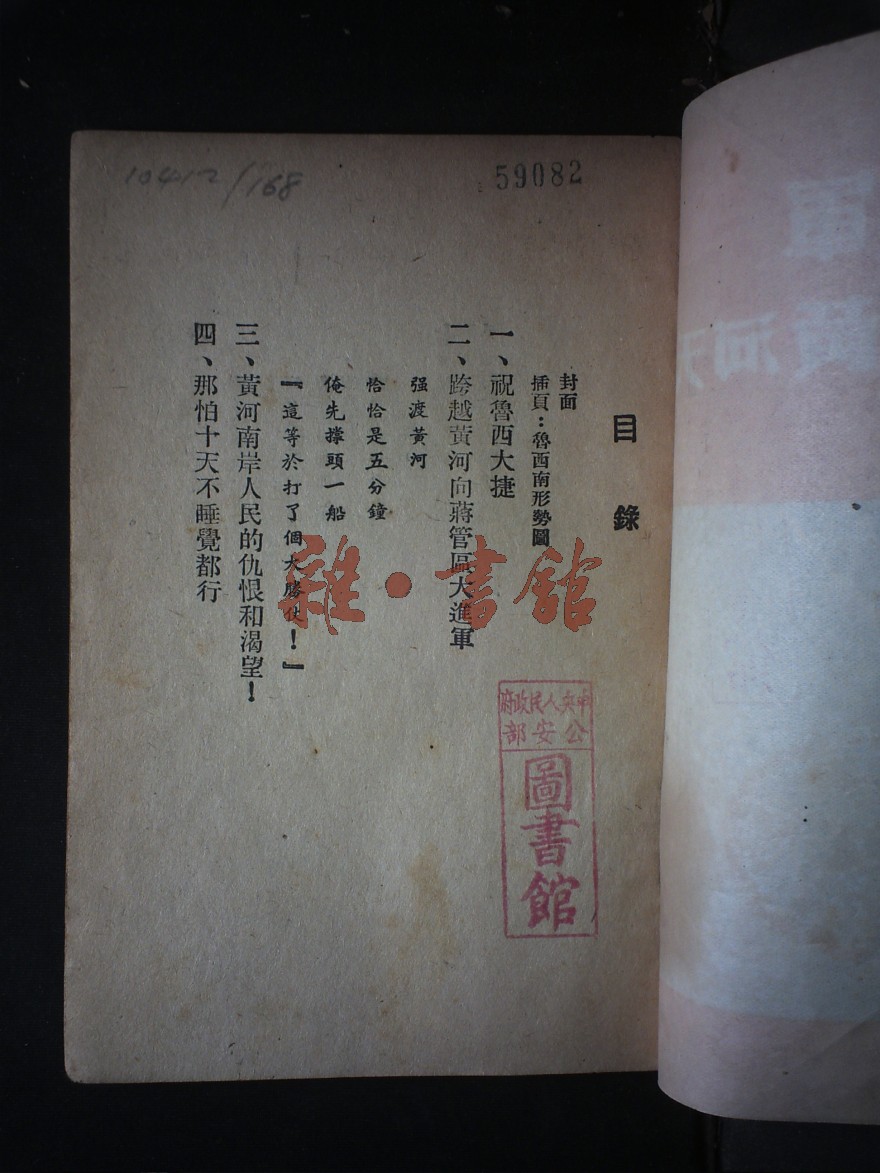 10412/168
59082
目錄
封面
插頁：魯西南形勢圖
一、祝魯西大捷
二、跨越黃河向蔣管區大進軍
强渡黃河
恰恰是五分鐘
俺先撐頭一船
『這等於打了個大勝仗！』
三、黃河南岸人民的仇恨和渴望！
四、那怕十天不睡覺都行
雜·書館
中央人民政府
公安部
圖書館
軍
黃河